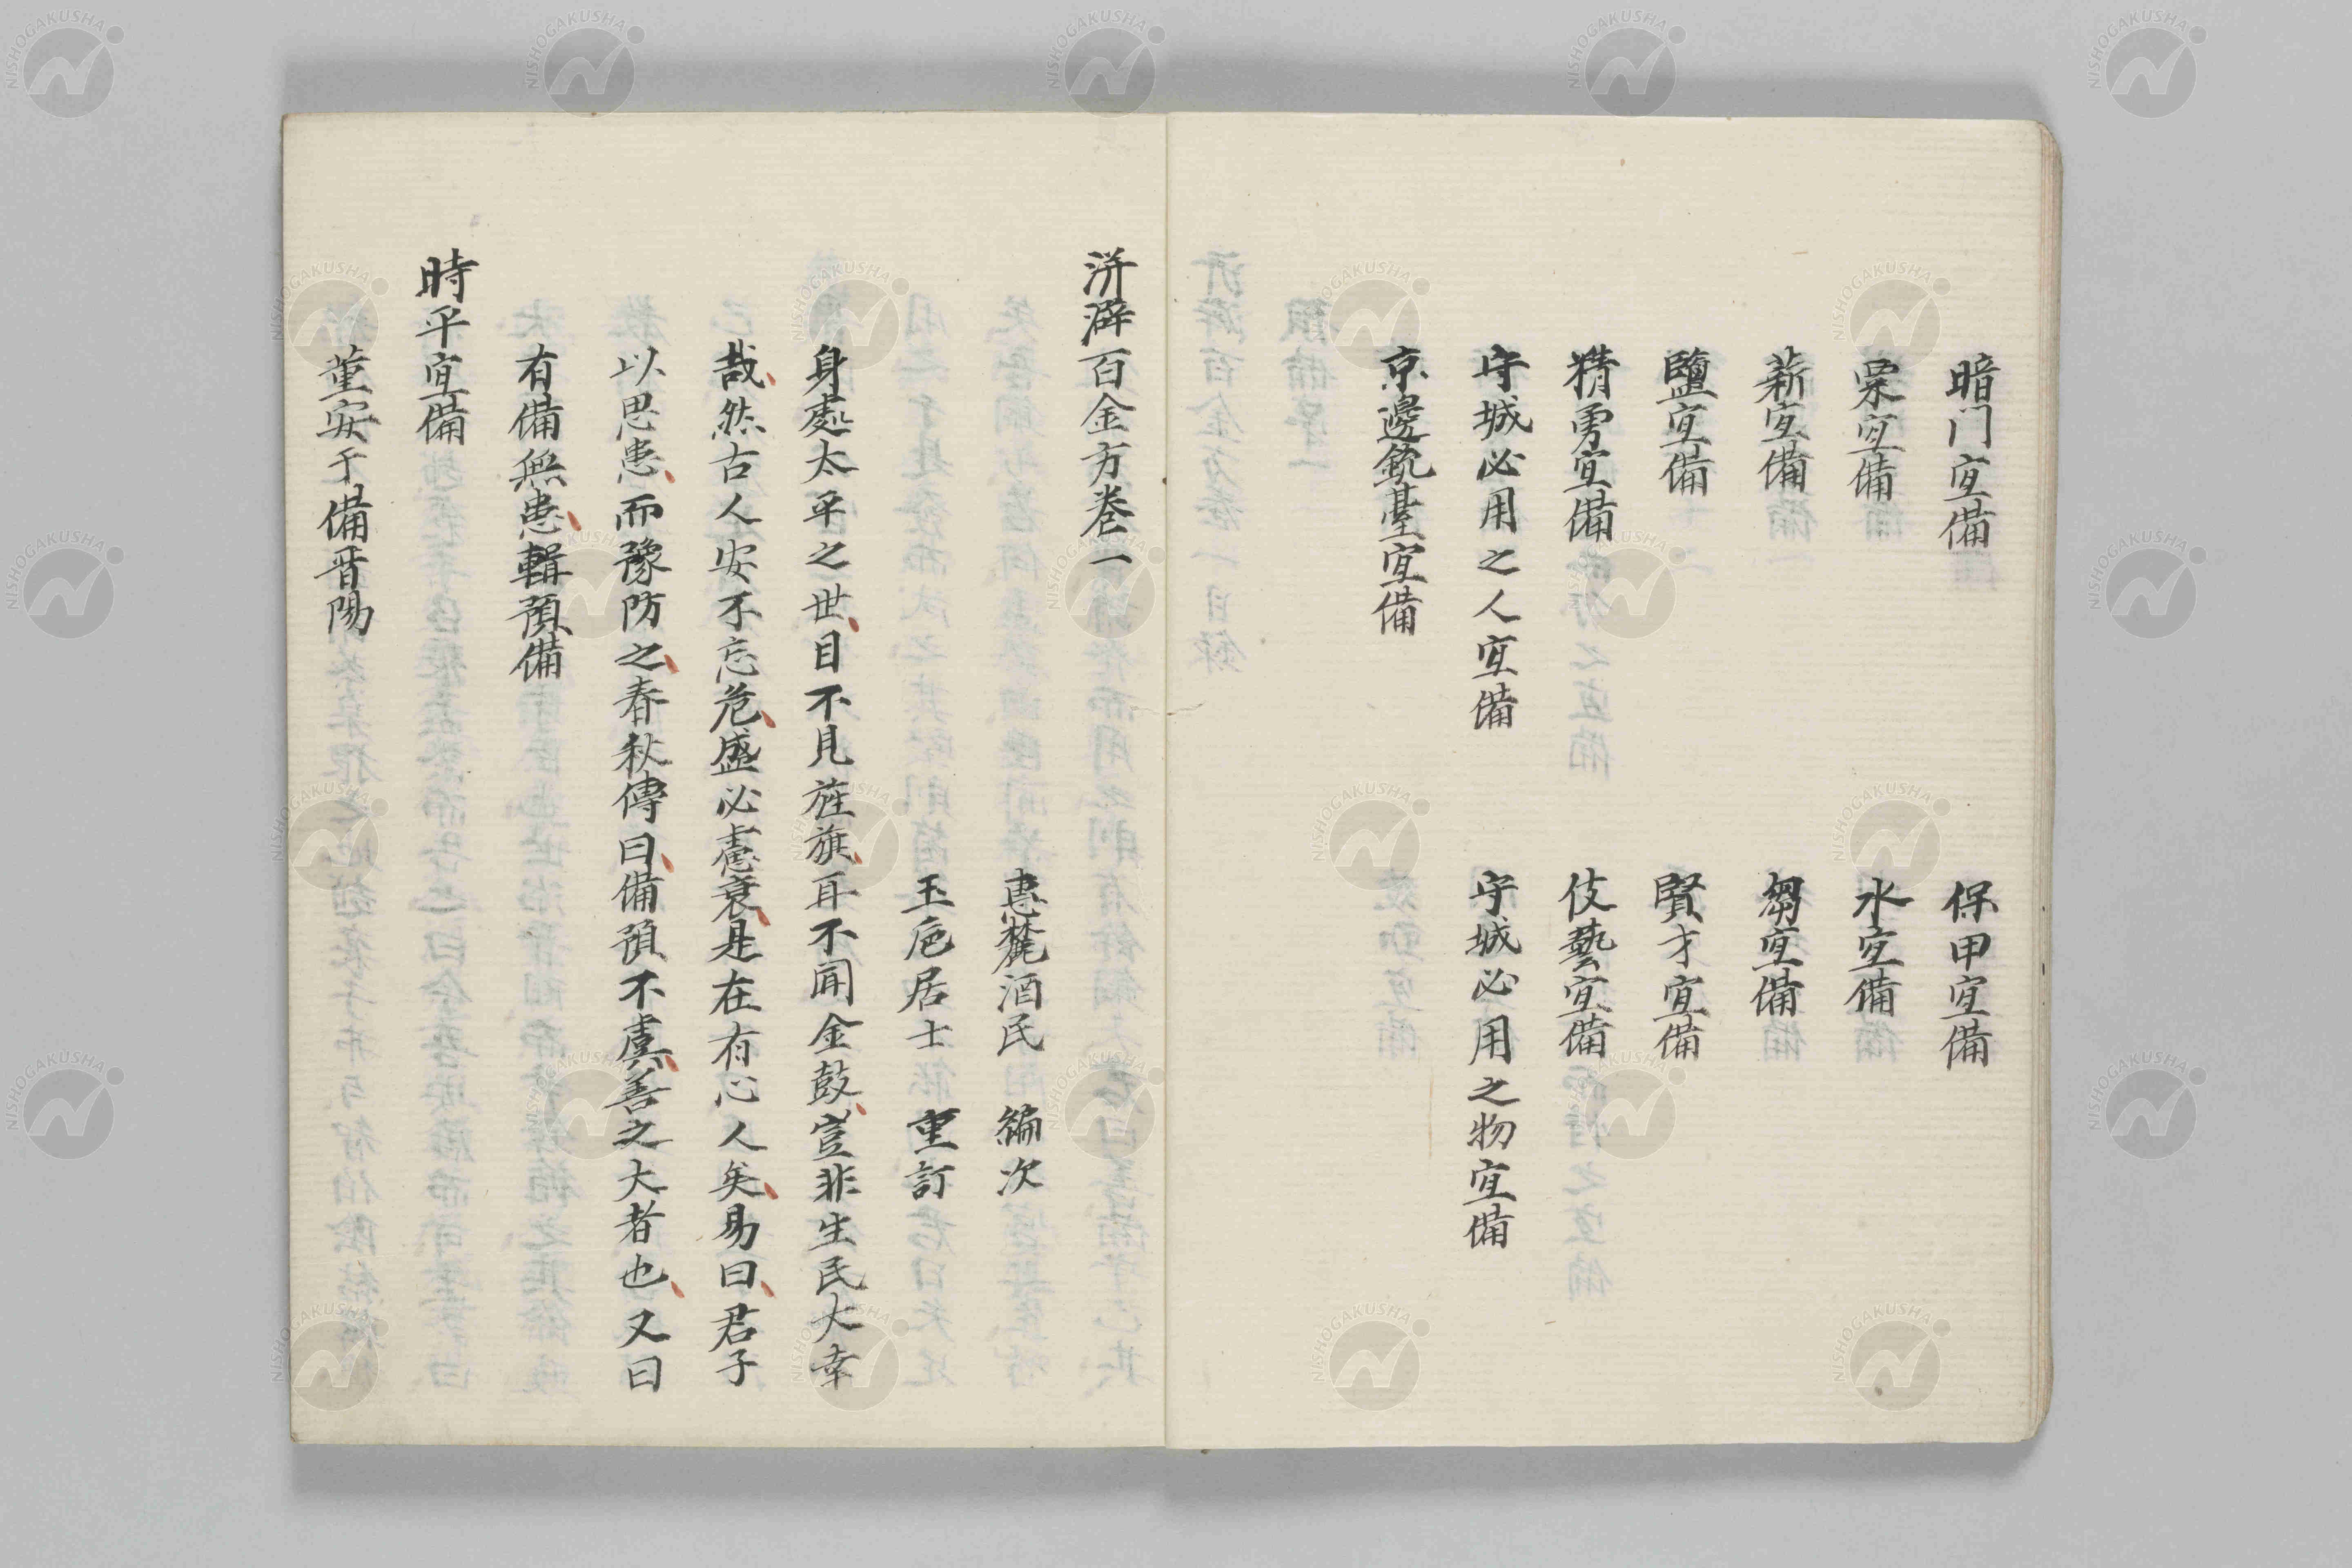 暗门宜備　保甲宜備
粟宜備　水宜備
薪宜備　芻宜備
鹽宜備　賢才宜備
精勇宜備　伎藝宜備
守城必用之人宜備　守城必用之物宜備
京邊銃臺宜備
洴澼百金方卷一
惠麓酒民　編次
玉巵居士　重訂
身處太平之世目不見旌旗耳不聞金鼓豈非生民大幸
哉然古人安不忘危盛必慮衰是在有心人矣易曰君子
以思患而豫防之春秋傳曰備預不虞善之大者也又曰
有備無患輯預備
時平宜備
董安于備晋陽
NISHOGAKUSHA